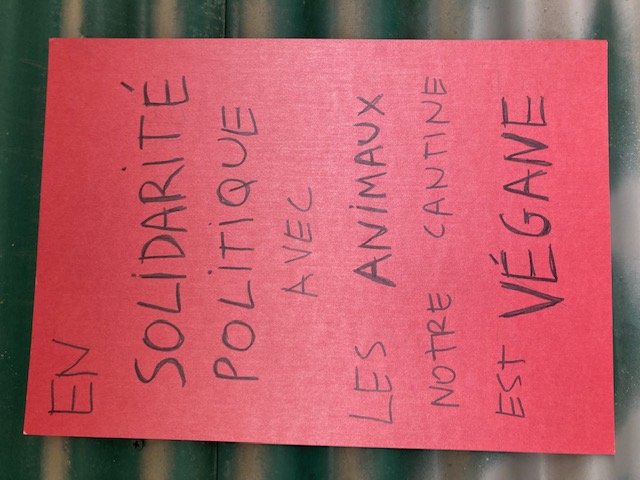 EN
SOLIDARITÉ
POLITIQUE
AVEC
LES ANIMAUX
NOTRE CANTINE
EST VÉGANE